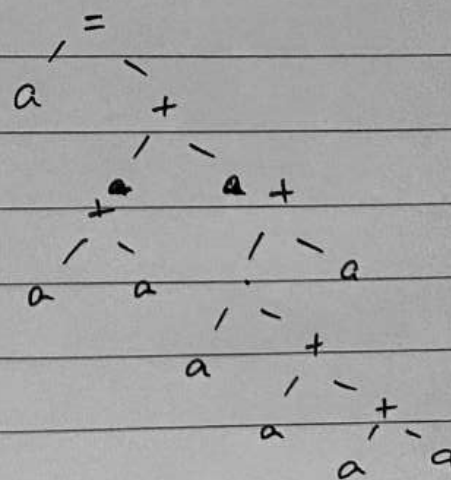 =
a
+
+ +
a a a
.
a +
a +
a a